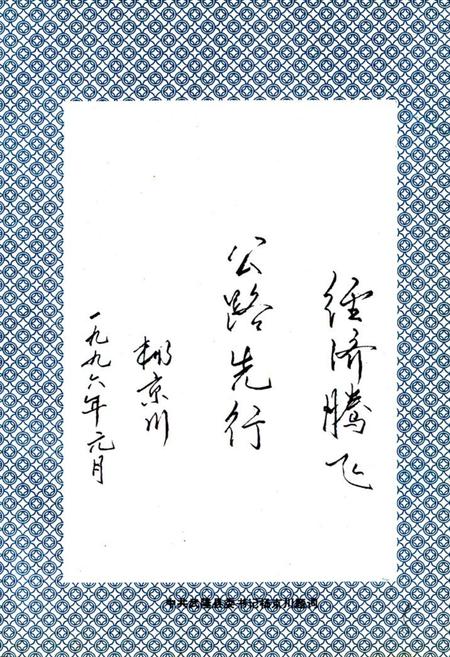 经济腾飞
公路先行
杨京川
一九九六年元月
中共武隆县委书记杨京川题词